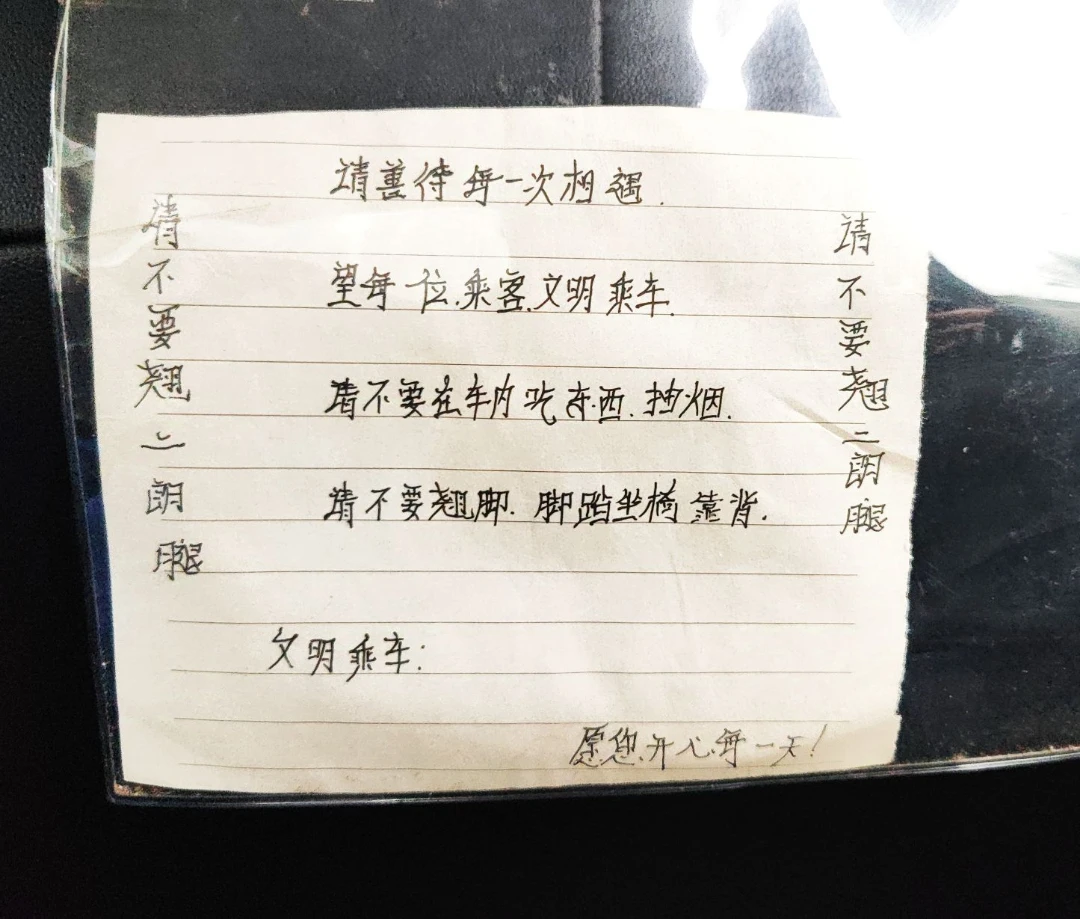 请善待每一次相遇.
望每一位.乘客.文明乘车.
请不要在车内吃东西.抽烟.
请不要翘脚.脚踏坐椅靠背.
文明乘车:
愿您.开心.每一天!
请不要翘二朗腿
请不要翘二朗腿